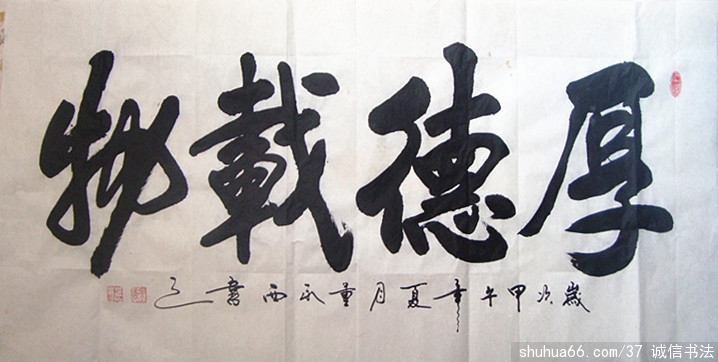 厚德載物
歲次甲午年夏月董永西書
shuhua66.com/37 诚信书法